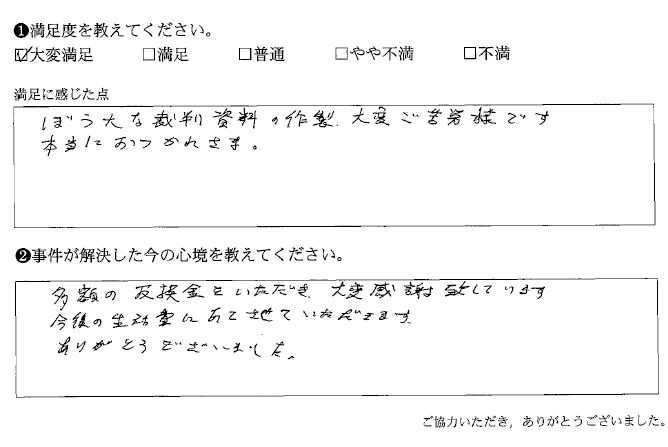 ❶満足度を教えてください。
☑大変満足 □満足 □普通 □やや不満 □不満
満足に感じた点
ぼう大な裁判資料の作製、大変ご苦労様です
本当におつかれさま。
❷事件が解決した今の心境を教えてください。
多額の 金をいただき 大変感謝致しています
今後の生活費にあてさせていただきます
ありがとうございました。
ご協力いただき，ありがとうございました。